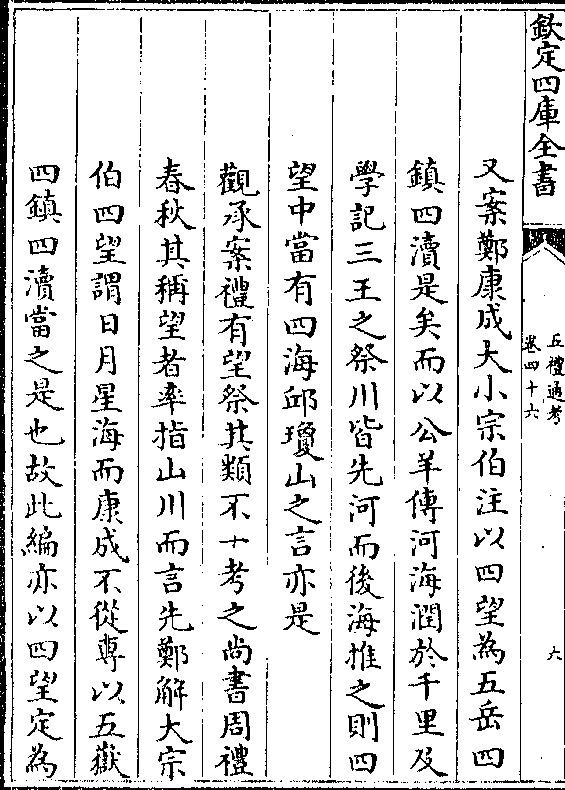 欽定四庫全書
五禮通考
卷四十六
六
又案鄭康成大小宗伯注以四望為五岳四
鎮四瀆是矣而以公羊傳河海潤於千里及
學記三王之祭川皆先河而後海推之則四
望中當有四海邱瓊山之言亦是
觀承案禮有望祭其類不一考之尚書周禮
春秋其稱望者率指山川而言先鄭解大宗
伯四望謂日月星海而康成不從專以五嶽
四鎮四瀆當之是也故此編亦以四望定為